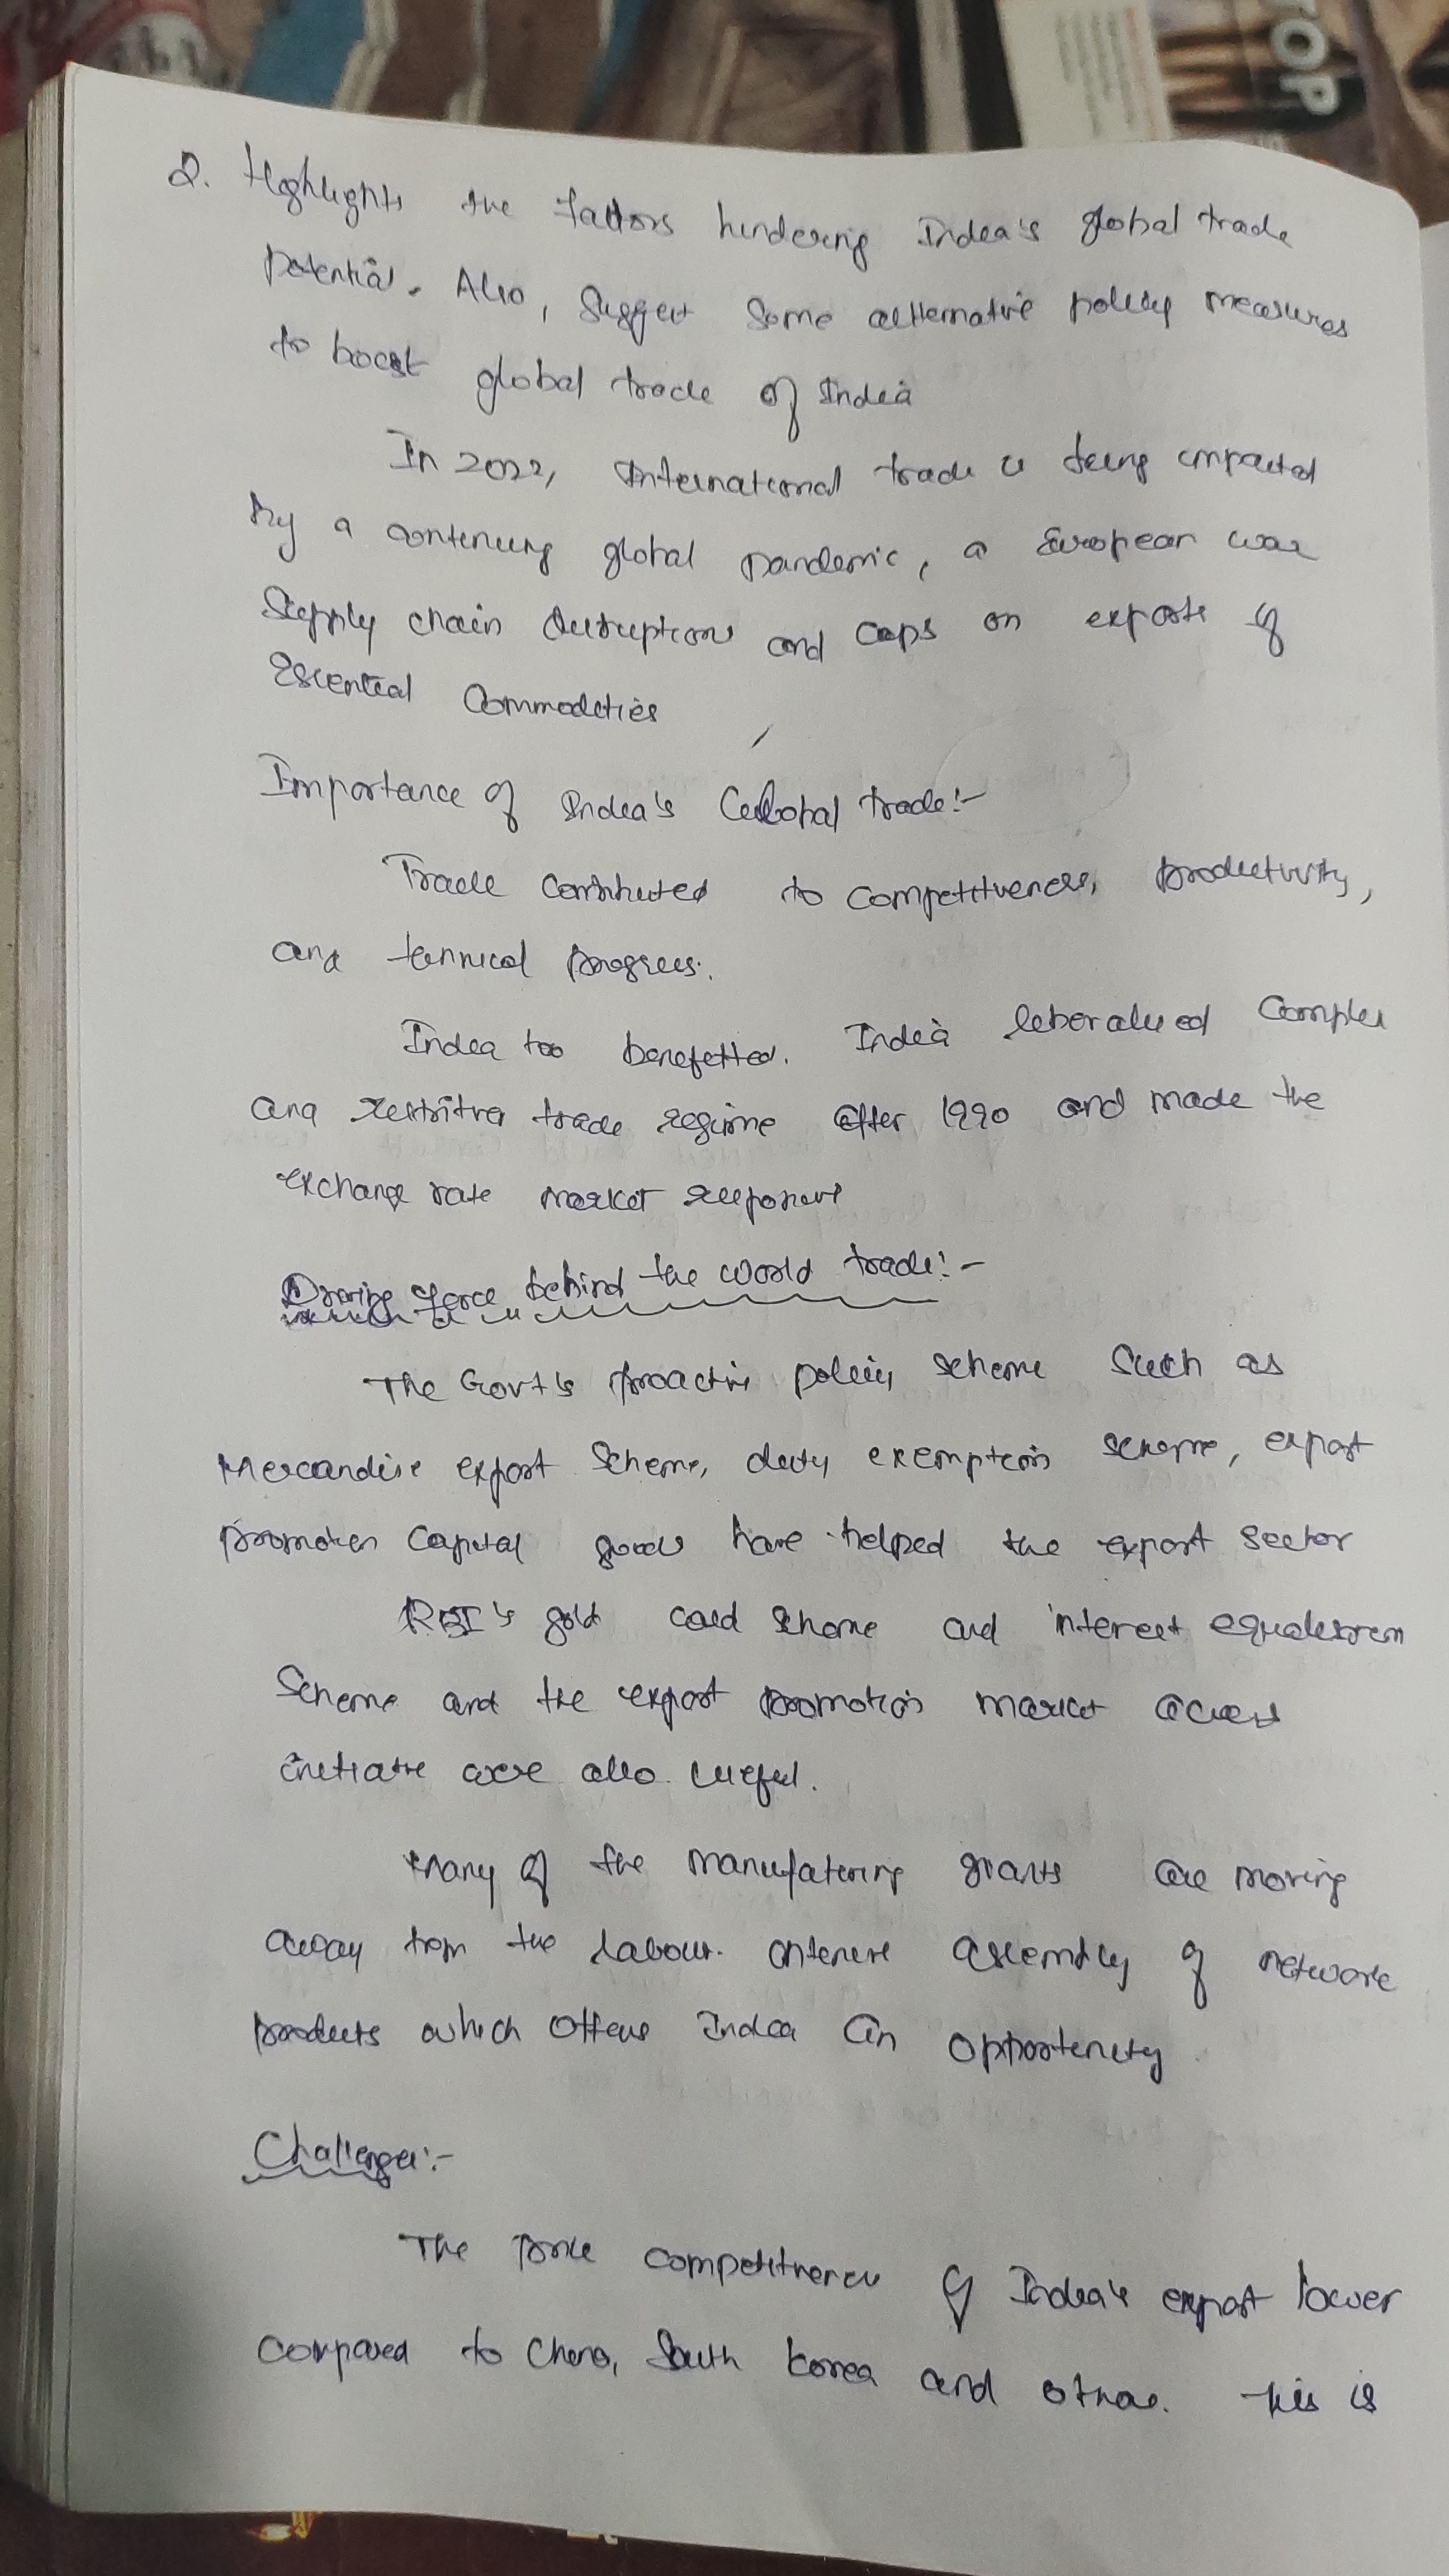 TOP
Q. Highlights the factors hindering India's global trade
potential. Also, Suggest Some alternative policy measures
to boost global trade of India
In 2022, International trade is being impacted
by a continuing global pandemic, a European war
Supply chain disruptions and caps on exports of
Essential Commodities
Importance of India's Global trade:-
Trade contributed to competitiveness, productivity,
and technical progress.
India too benefitted. India liberalised Complex
and restritive trade regime after 1990 and made the
exchange rate market responsive
Driving force behind the world trade:-
The Govt's proactive policy scheme Such as
Mercandise export Scheme, duty exemption scheme, export
promotion Capital goods have helped the export sector
RBI's gold card scheme and interest equalisation
Scheme and the export promotion market access
initiative were also useful.
Many of the manufaturing giants are moving
away from the labour intensive assembly of network
products which offers India an opportunity
Challenges:-
The price competitiveness of India's export lower
compared to China, South korea and others. This is